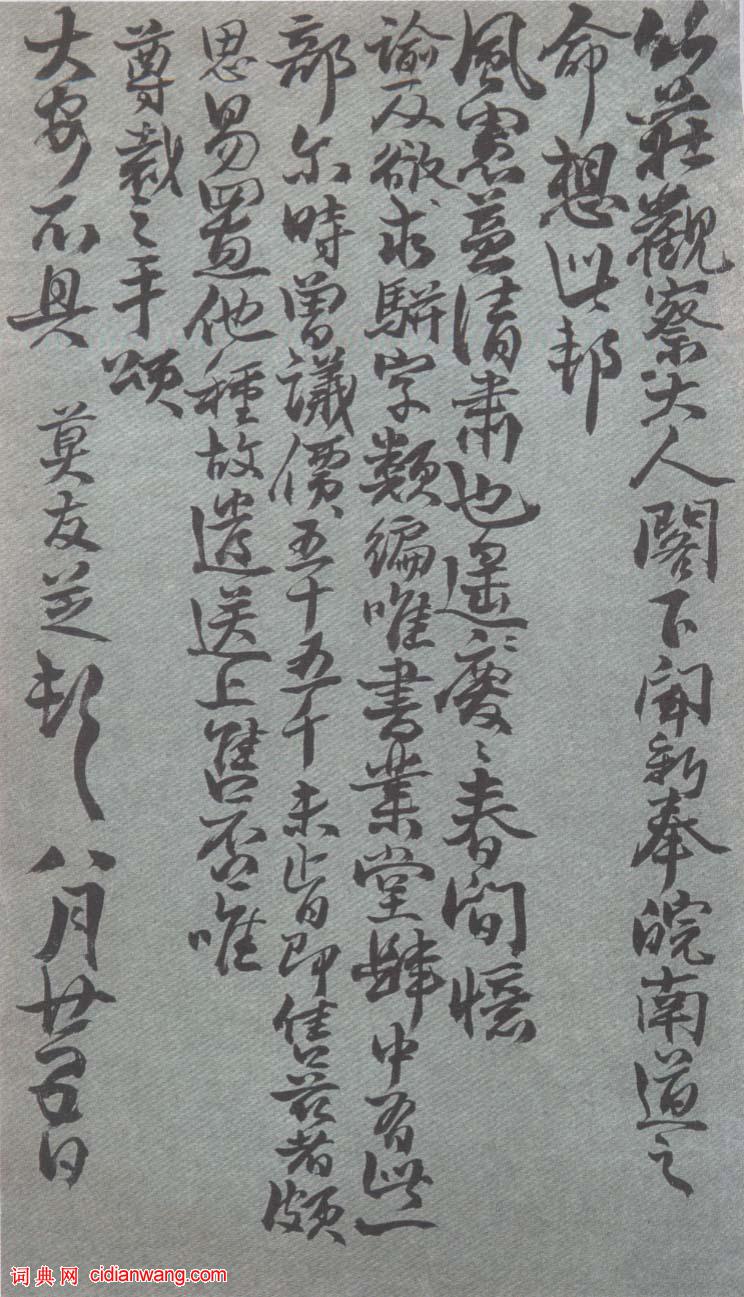 竹莊觀察大人閣下聞新奉皖南道之
命想此邦
風憲益清肅也遙慶慶春間憶
諭及欲求駢字類編唯書業堂肆中有此一
部尔時曾議價五十五千未肯即售茲者頗
思易置他種故遣送上售否唯
尊裁之手頌
大安不具 莫友芝頓 八月廿五日
词典网 cidianwang.com